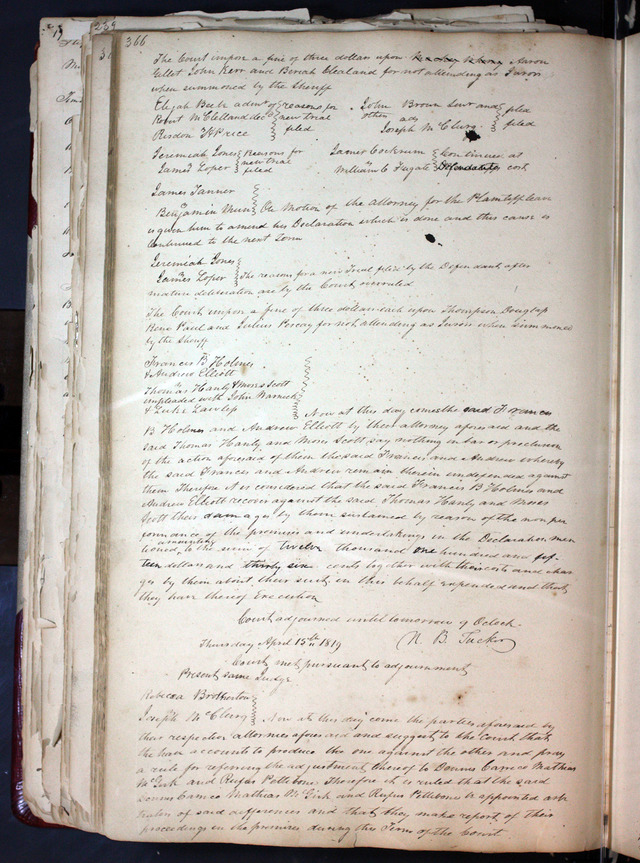 239
366
The Court impose a fine of three dollars upon Aaron
Gellet John Kerr and Beriah Cleland for not attending as Jurors
when summoned by the Sheriff
Elijah Beebe admr of
Robt McClelland decd
Risdon H Price
reasons for
new trial
filed
John Brown Senr and
others
ads
Joseph McClurg
filed
filed
Jeremiah Jones
James Loper
Reasons for
new trial
filed
James Cockrum
William C Fugate
Continued at
Defendants cost
James Tanner
Benjamin On Motion of the attorney for the Plaintiff leave
is given him to amend his Declaration which is done and this cause is
Continued to the next Term
Jeremiah Jones
James Loper The reasons for a new Trial filed by the Defendant after
mature deliberation are by the Court overruled
The Court impose a fine of three dollars each upon Thompson Douglass
Rene Paul and Julius for not attending as Jurors when summoned
by the Sheriff
Francis B Holmes
& Andrew Elliott
Thomas Hanly & Moses Scott
impleaded with John Warnick
& Luke Lawless
Now at this day comes the said Francis
B Holmes and Andrew Elliott by their attorney aforesaid and the
said Thomas Hanly and Moses Scott say nothing in bar or preclusion
of the action aforesaid of them the said Francis and Andrew whereby
the said Francis and Andrew remain therein undefended against
them Therefore it is considered that the said Francis B Holmes and
Andrew Elliott recover against the said Thomas Hanly and Moses
Scott their damages by them sustained by reason of the non per
formance of the promises and undertakings in the Declaration men
tioned, amounting to the sum of twelve thousand one hundred and fif-
teen dollars and thirty six cents together with their costs and char
ges by them about their suit in this behalf expended and that
they have thereof Execution
Court adjourned until tomorrow 9 Oclock
N. B. Tucker
Thursday April 15th 1819
Court met pursuant to adjournment
Present same Judge
Rebecca Brotherton
Joseph McClurg Now at this day come the parties aforesaid by
their respective attornies aforesaid and suggest to the Court that
the have accounts to produce the one against the other and pray
a rule for referring the adjustment thereof to Dennis Carrico Mathias
McGirk and Rufus Pettibone Therefore it is ruled that the said
Dennis Carrico Mathias McGirk and Rufus Pettibone be appointed arbi
trators of said differences and that they make report of their
proceedings in the premises during this Term of the Court